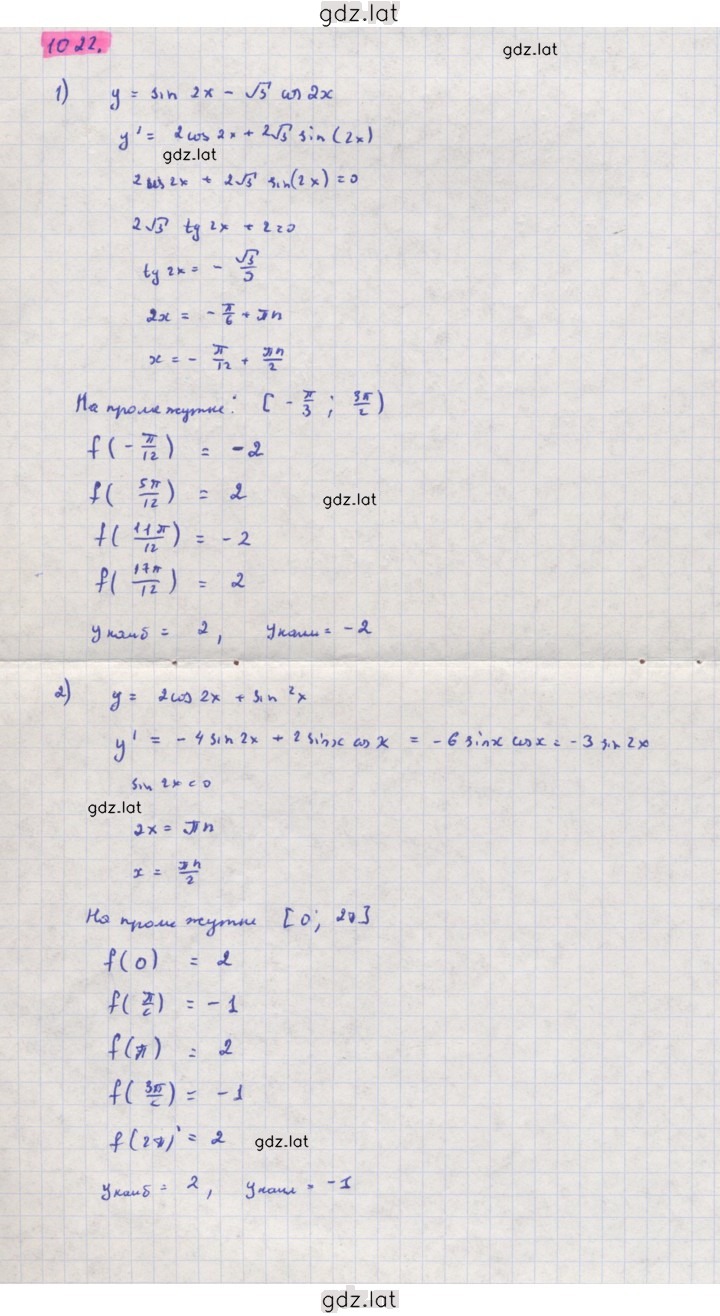 gdz.lat
1022.
gdz.lat
1) y = sin 2x - √3 cos 2x
y' = 2cos 2x + 2√3 sin(2x)
gdz.lat
2cos 2x + 2√3 sin(2x) = 0
2√3 tg 2x + 2 = 0
tg 2x = - √3/3
2x = - π/6 + πn
x = - π/12 + πn/2
На промежутке: [- π/3 ; 3π/2)
f(- π/12) = -2
f(5π/12) = 2
gdz.lat
f(11π/12) = -2
f(17π/12) = 2
y наиб = 2, y наим = -2
2) y = 2cos 2x + sin²x
y' = -4 sin 2x + 2 sinx cos x = -6 sinx cosx = -3 sin 2x
sin 2x = 0
gdz.lat
2x = πn
x = πn/2
На промежутке [0; 2π]
f(0) = 2
f(π/2) = -1
f(π) = 2
f(3π/2) = -1
f(2π) = 2
gdz.lat
y наиб = 2, y наим = -1
gdz.lat